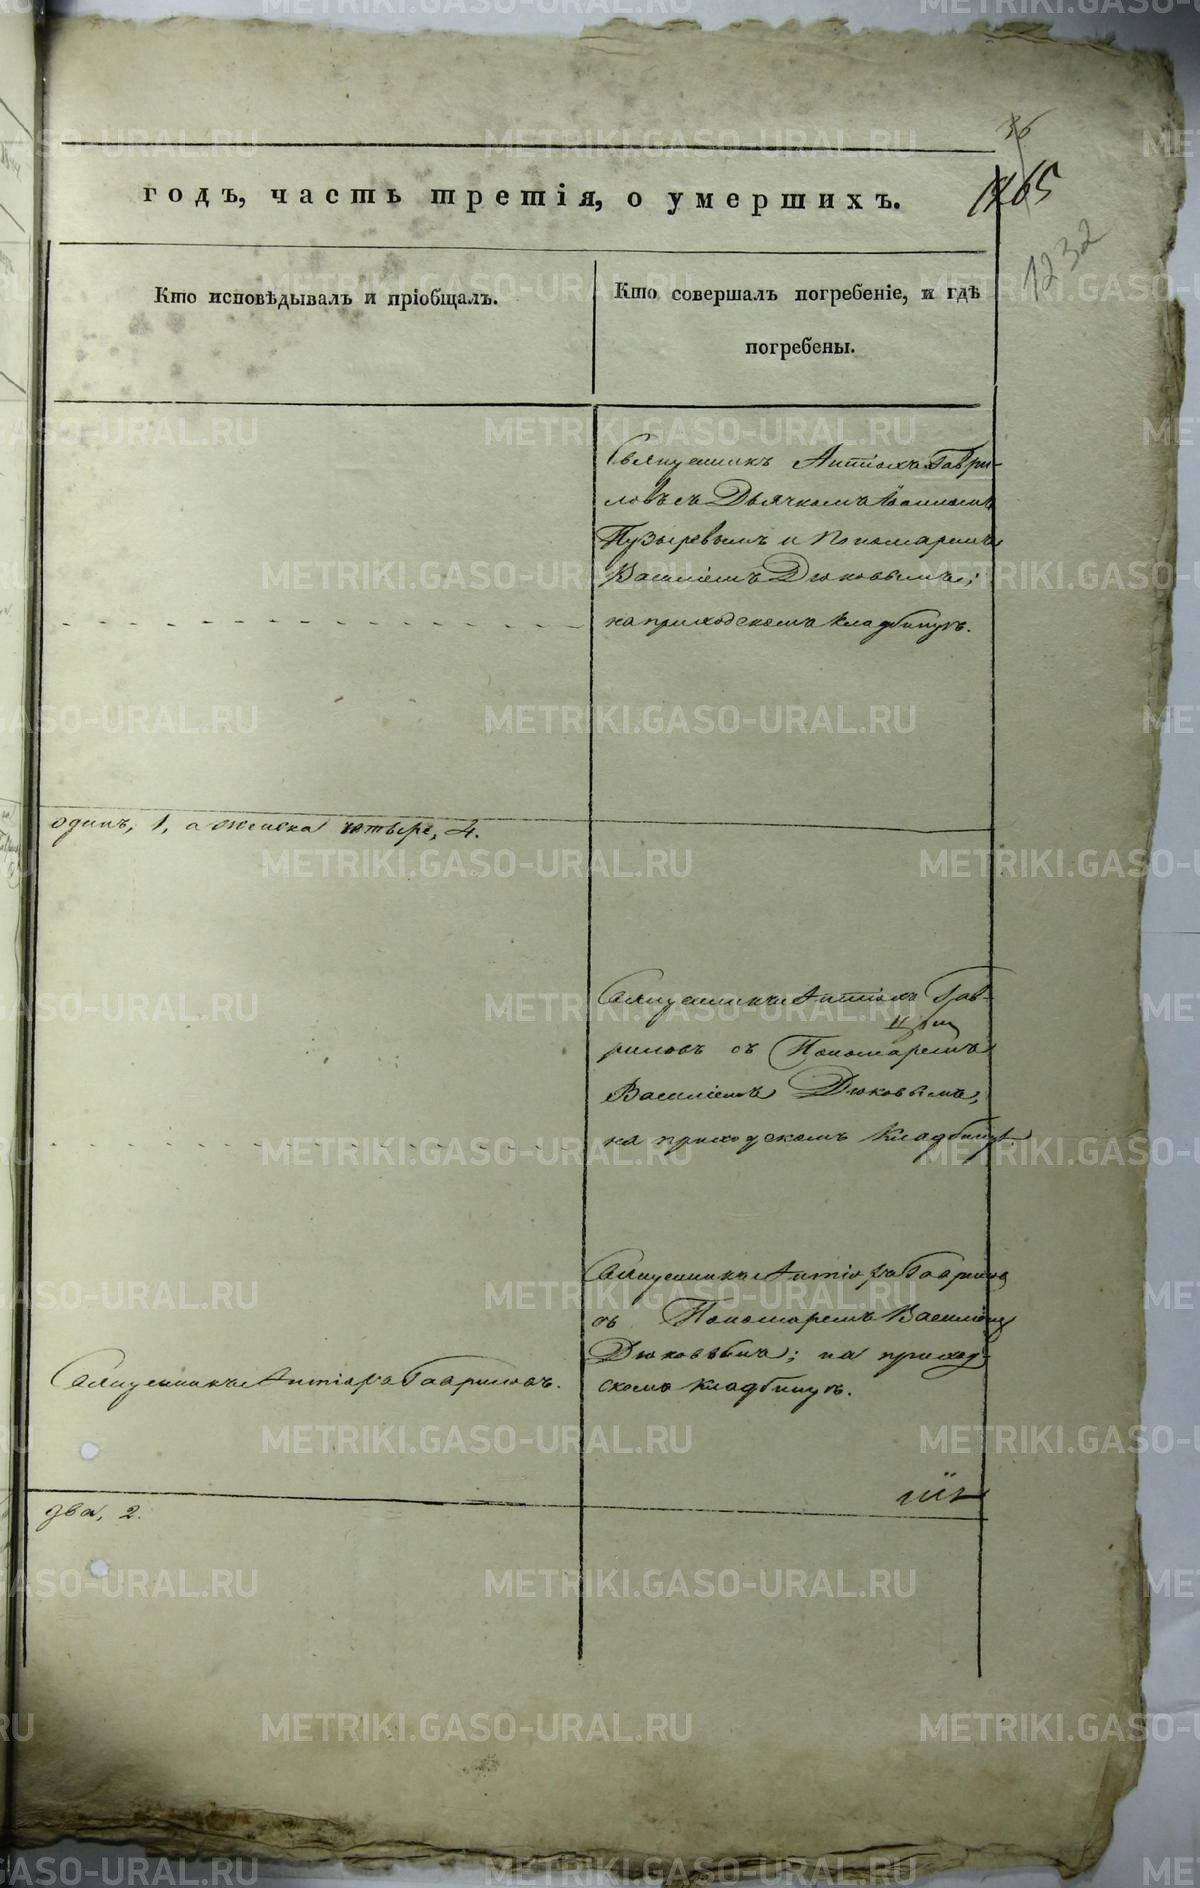 36
1265
1232
годъ, часть третія, о умершихъ.
Кто исповѣдывалъ и пріобщалъ.
Кто совершалъ погребеніе, и гдѣ
погребены.
Священникъ Антіохъ Гаври-
ловъ съ Дьячкомъ Іоанномъ
Пузыревымъ и Пономаремъ
Василіемъ Дюковымъ;
на приходскомъ кладбищѣ.
одинъ, 1, а женска четыре, 4.
Священникъ Антіохъ Гав-
риловъ съ Пономаремъ
Василіемъ Дюковымъ,
на приходскомъ кладбищѣ.
Священникъ Антіохъ Гаврилов
съ Пономаремъ Василіем
Дюковымъ; на приход-
скомъ кладбищѣ.
Священникъ Антіохъ Гавриловъ.
два, 2.
METRIKI.GASO-URAL.RU